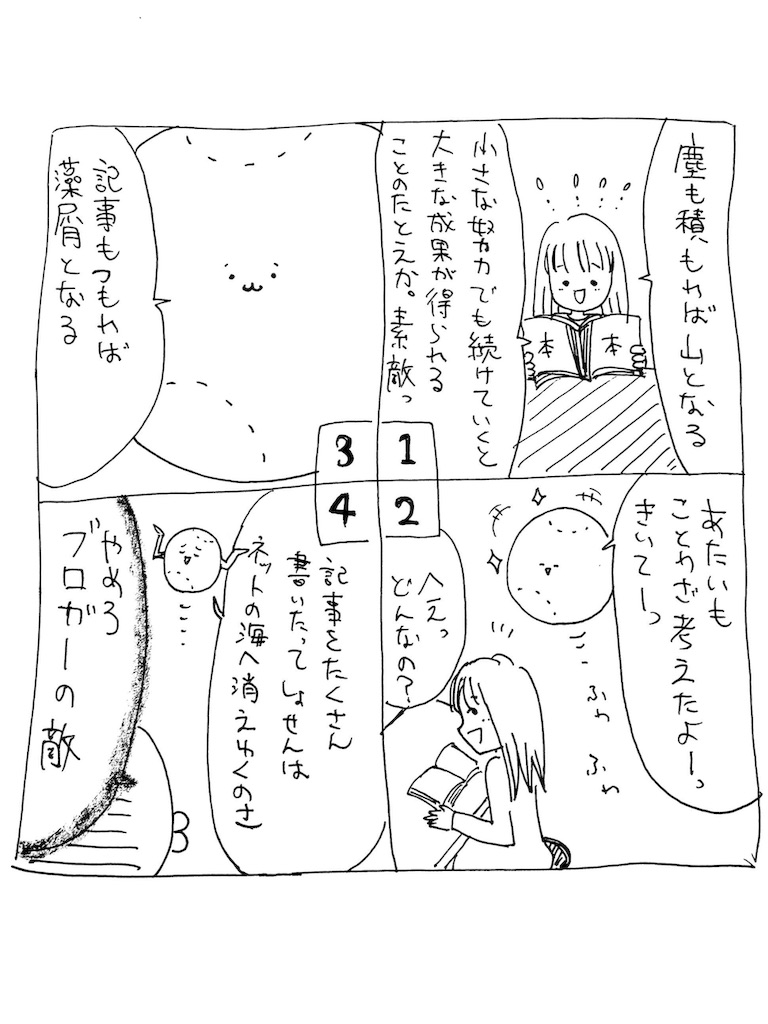 塵も積もれば山となる
本
本
小さな努力でも続けていくと
大きな成果が得られる
ことのたとえか。素敵っ
1
あたいも
ことわざ考えたよーっ
きいてーっ
ふわ
ふわ
へえっ
どんなの？
2
記事もつもれば
藻屑となる
3
記事をたくさん
書いたってしょせんは
ネットの海へ消えゆくのさ
やめろ
ブロガーの敵
4